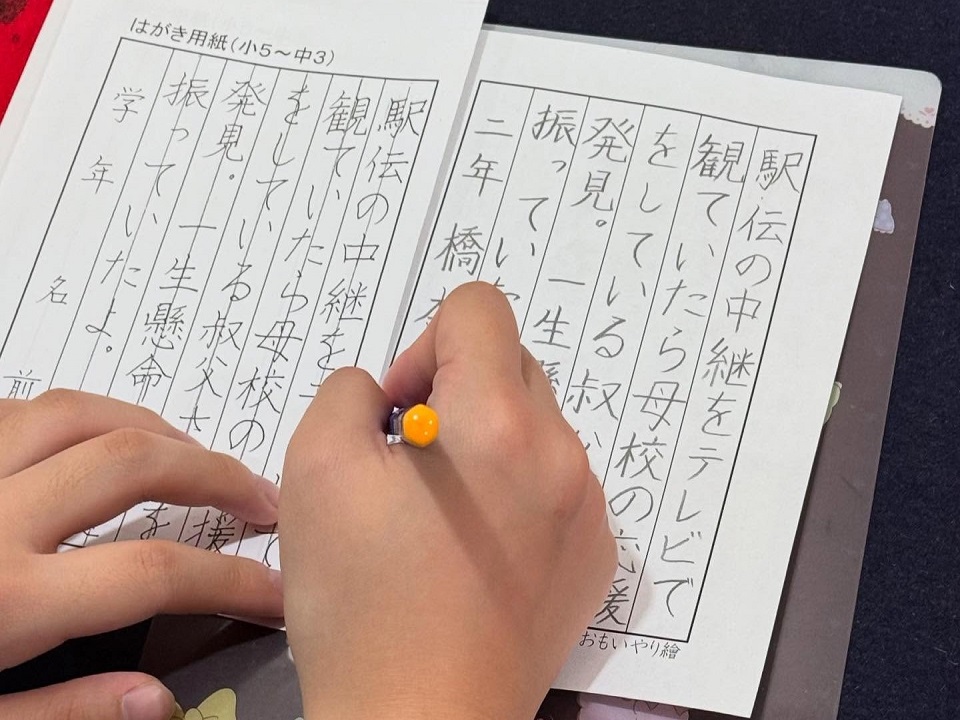 駅伝の中継をテレビで
観ていたら母校の応援
をしている叔
発見。一生
振ってい
二年 橋
おもいやり繪
はがき用紙(小5～中3)
駅伝の中継を
観ていたら母校の
をしている叔父 援
発見。一生懸命 を
振っていたよ。
学年 名前